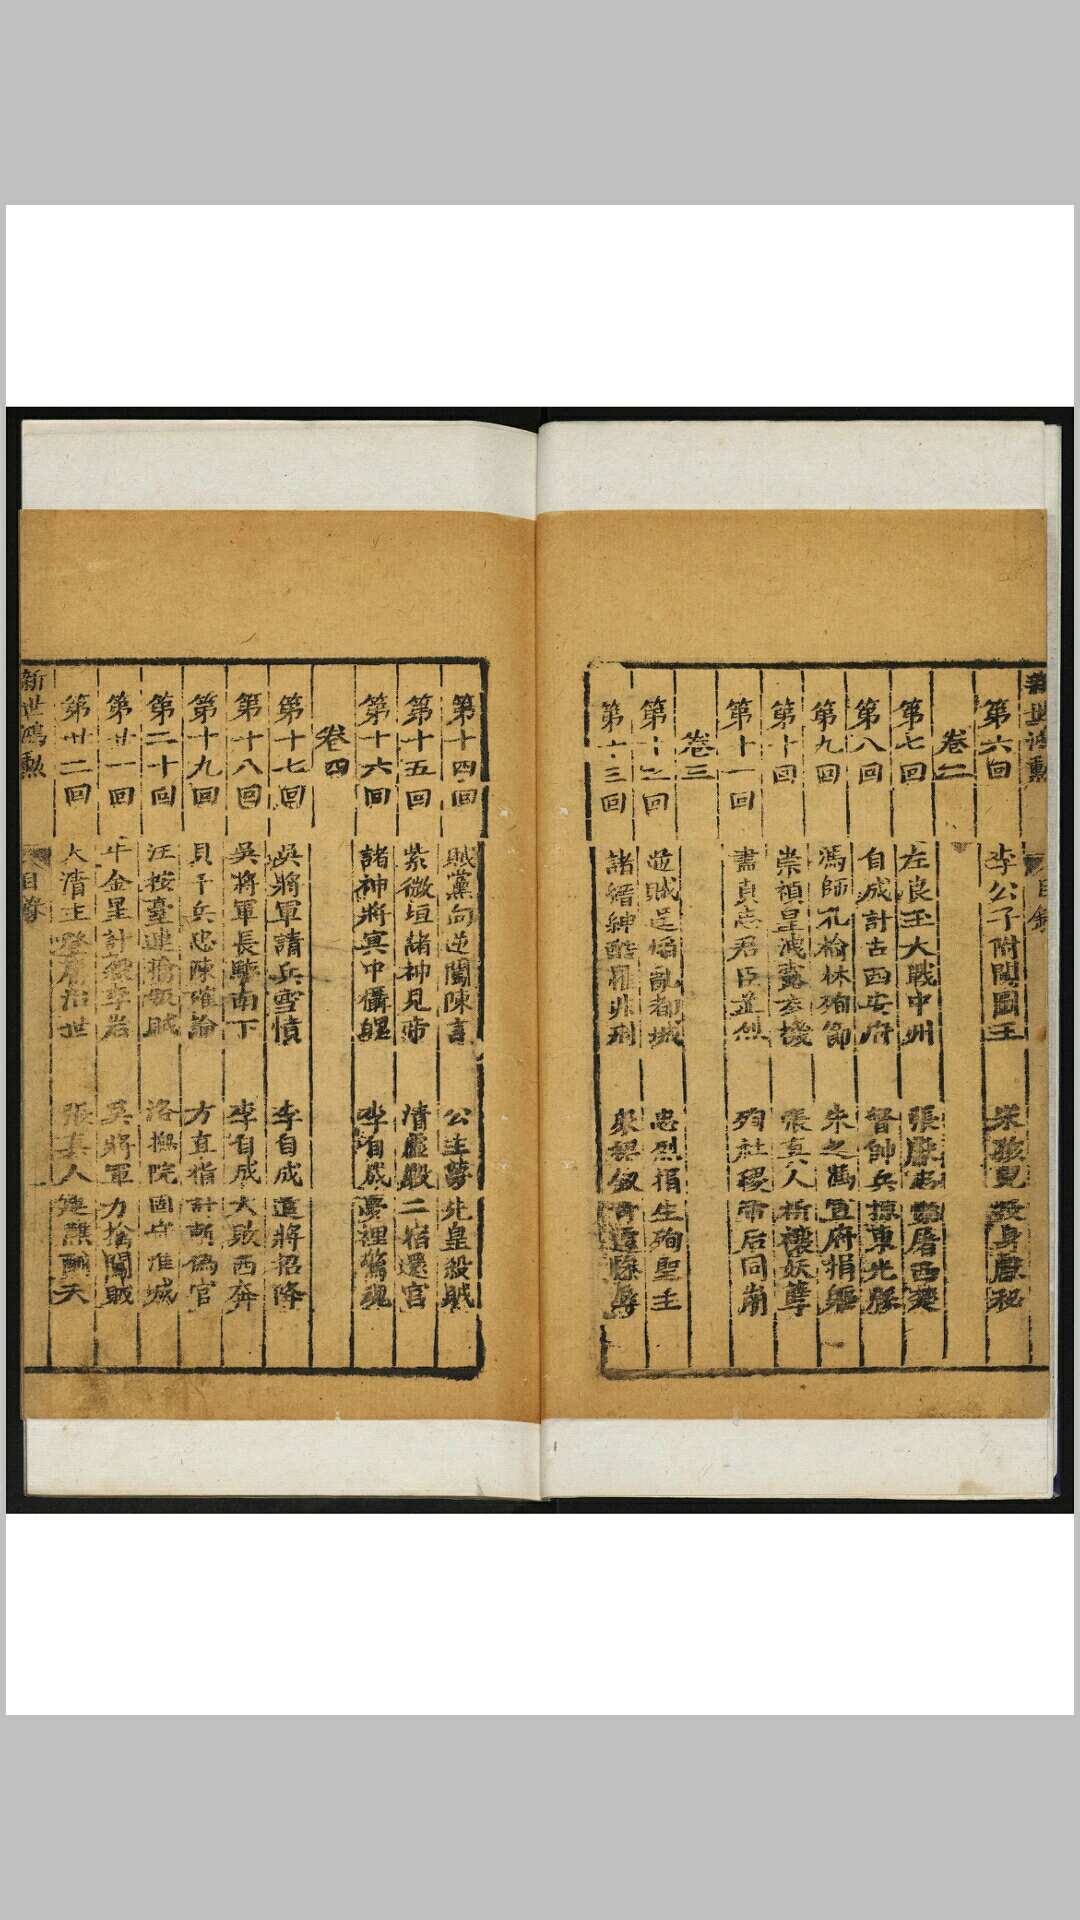 新世鴻勲 目錄
第六回 李公子附闖圖王 宋孩兒獻身獻秘
卷二
第七回 左良玉大戰中州 張獻忠 屠西
第八回 自成計占西安府 督帥兵掠東光縣
第九回 馮師孔榆林殉節 朱之馮宣府捐軀
第十回 崇禎皇洩露玄機 張真人祈禳妖孽
第十一回 盡貞忠君臣並烈 殉社稷帝后同崩
卷三
第十二回 逆賊 都城 忠烈捐生殉聖主
第十三回 諸縉紳酷罹非刑
第十四回 賊黨勾逆闖陳言 公主夢先皇殺賊
第十五回 紫微垣諸神見帝 清虛殿二宿還宮
第十六回 諸神將冥中攝 李自成夢裡驚魂
卷四
第十七回 吳將軍請兵雪憤 李自成遣將招降
第十八回 吳將軍長驅南下 李自成大敗西奔
第十九回 具予兵忠陳確論 方直指計斬偽官
第二十回 汪按臺 賊 洛撫院固守淮城
第廿一回 牛金星計 李岩 吳將軍力擒闖賊
第廿二回 大清主登 治世 張真人建醮 天
新世鴻勲 目錄 二